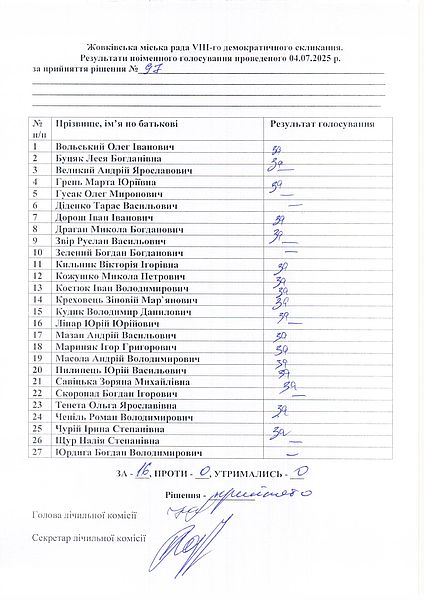 Жовківська міська рада VIII-го демократичного скликання.
Результати поіменного голосування проведеного 04.07.2025 р.
за прийняття рішення № 97
№ п/п Прізвище, ім’я по батькові Результат голосування
1 Вольський Олег Іванович за
2 Буцяк Леся Богданівна за
3 Великий Андрій Ярославович —
4 Грень Марта Юріївна за
5 Гусак Олег Миронович —
6 Діденко Тарас Васильович —
7 Дорош Іван Іванович за
8 Драган Микола Богданович за
9 Звір Руслан Васильович —
10 Зелений Богдан Богданович —
11 Кильник Вікторія Ігорівна за
12 Кожушко Микола Петрович за
13 Костюк Іван Володимирович за
14 Креховець Зіновій Мар`янович за
15 Кудик Володимир Данилович за
16 Лінар Юрій Юрійович —
17 Мазан Андрій Васильович за
18 Мариняк Ігор Григорович за
19 Масола Андрій Володимирович за
20 Пилипець Юрій Васильович за
21 Савіцька Зоряна Михайлівна за
22 Скоропад Богдан Ігорович —
23 Тенета Ольга Ярославівна за
24 Чепіль Роман Володимирович
25 Чурій Ірина Степанівна за
26 Щур Надія Степанівна —
27 Юрдига Богдан Володимирович —
ЗА - 16, ПРОТИ - 0, УТРИМАЛИСЬ - 0
Рішення - прийнято
Голова лічильної комісії
Секретар лічильної комісії